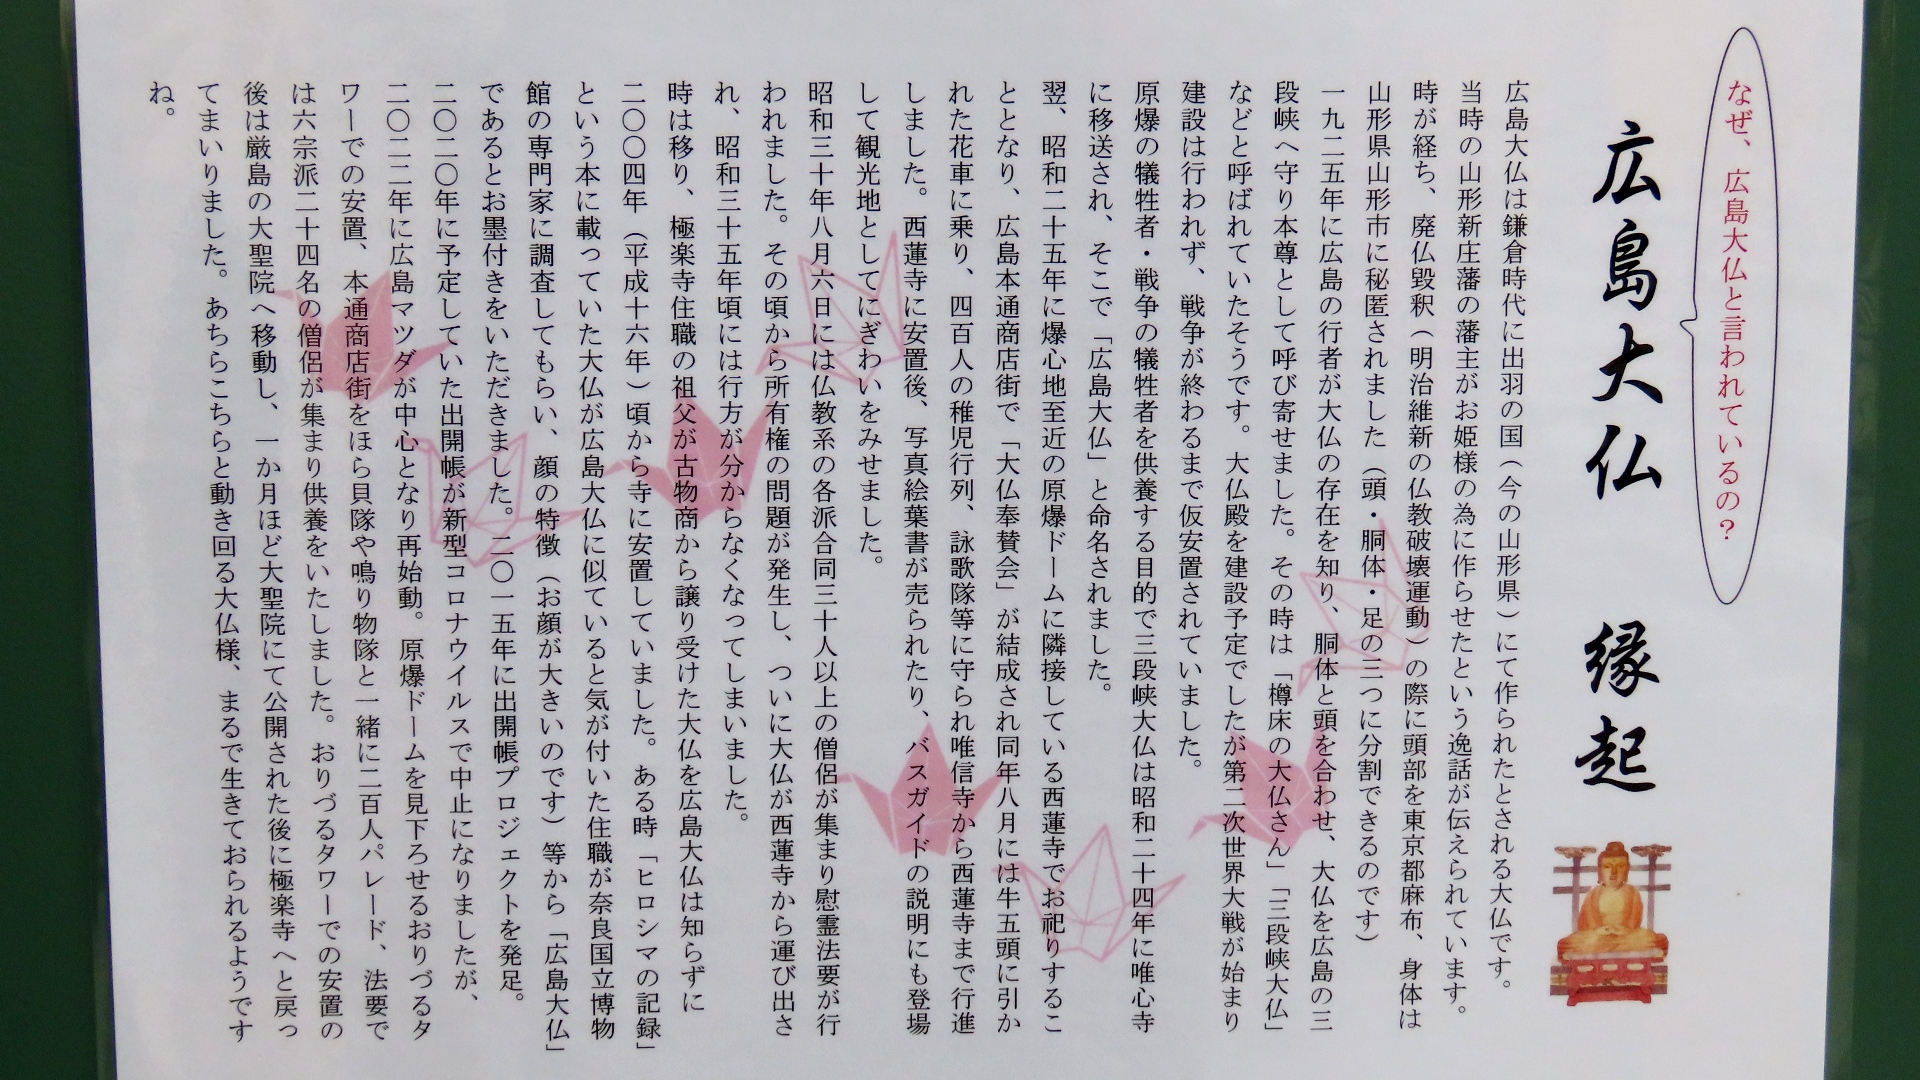 なぜ、広島大仏と言われているの？
広島大仏　縁起
広島大仏は鎌倉時代に出羽の国（今の山形県）にて作られたとされる大仏です。
当時の山形新庄藩の藩主がお姫様の為に作らせたという逸話が伝えられています。
時が経ち、廃仏毀釈（明治維新の仏教破壊運動）の際に頭部を東京都麻布、身体は
山形県山形市に秘匿されました（頭・胴体・足の三つに分割できるのです）
一九二五年に広島の行者が大仏の存在を知り、胴体と頭を合わせ、大仏を広島の三
段峡へ守り本尊として呼び寄せました。その時は「樽床の大仏さん」「三段峡大仏」
などと呼ばれていたそうです。大仏殿を建設予定でしたが第二次世界大戦が始まり
建設は行われず、戦争が終わるまで仮安置されていました。
原爆の犠牲者・戦争の犠牲者を供養する目的で三段峡大仏は昭和二十四年に唯心寺
に移送され、そこで「広島大仏」と命名されました。
翌、昭和二十五年に爆心地至近の原爆ドームに隣接している西蓮寺でお祀りするこ
ととなり、広島本通商店街で「大仏奉賛会」が結成され同年八月には牛五頭に引か
れた花車に乗り、四百人の稚児行列、詠歌隊等に守られ唯信寺から西蓮寺まで行進
しました。西蓮寺に安置後、写真絵葉書が売られたり、バスガイドの説明にも登場
して観光地としてにぎわいをみせました。
昭和三十年八月六日には仏教系の各派合同三十人以上の僧侶が集まり慰霊法要が行
われました。その頃から所有権の問題が発生し、ついに大仏が西蓮寺から運び出さ
れ、昭和三十五年頃には行方が分からなくなってしまいました。
時は移り、極楽寺住職の祖父が古物商から譲り受けた大仏を広島大仏は知らずに
二〇〇四年（平成十六年）頃から寺に安置していました。ある時「ヒロシマの記録」
という本に載っていた大仏が広島大仏に似ていると気が付いた住職が奈良国立博物
館の専門家に調査してもらい、顔の特徴（お顔が大きいのです）等から「広島大仏」
であるとお墨付きをいただきました。二〇一五年に出開帳プロジェクトを発足。
二〇二〇年に予定していた出開帳が新型コロナウイルスで中止になりましたが、
二〇二二年に広島マツダが中心となり再始動。原爆ドームを見下ろせるおりづるタ
ワーでの安置、本通商店街をほら貝隊や鳴り物隊と一緒に二百人パレード、法要で
は六宗派二十四名の僧侶が集まり供養をいたしました。おりづるタワーでの安置の
後は厳島の大聖院へ移動し、一か月ほど大聖院にて公開された後に極楽寺へと戻っ
てまいりました。あちらこちらと動き回る大仏様、まるで生きておられるようです
ね。